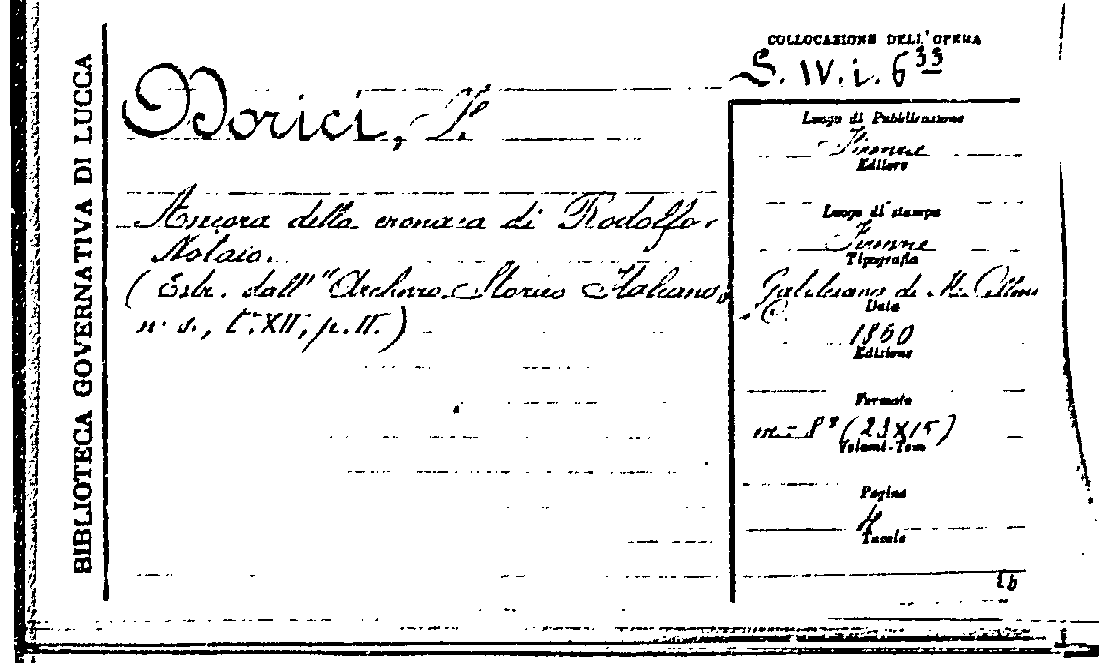 BIBLIOTECA GOVERNATIVA DI LUCCA
COLLOCAZIONE DELL'OPERA
S. IV. i. 6 33
Dorici,
Ancora della cronaca di Rodolfo
Notaio.
(Estr. dall' "Archivio Storico Italiano,
n. s., t. XII, p. II.)
Luogo di Pubblicazione
Firenze
Editore
Luogo di stampa
Firenze
Tipografia
Galileiana di M. Cellini
e C.
Data
1860
Edizione
Formato
in-8º (23X15)
Volumi-Tomi
Pagine
4
Tavole